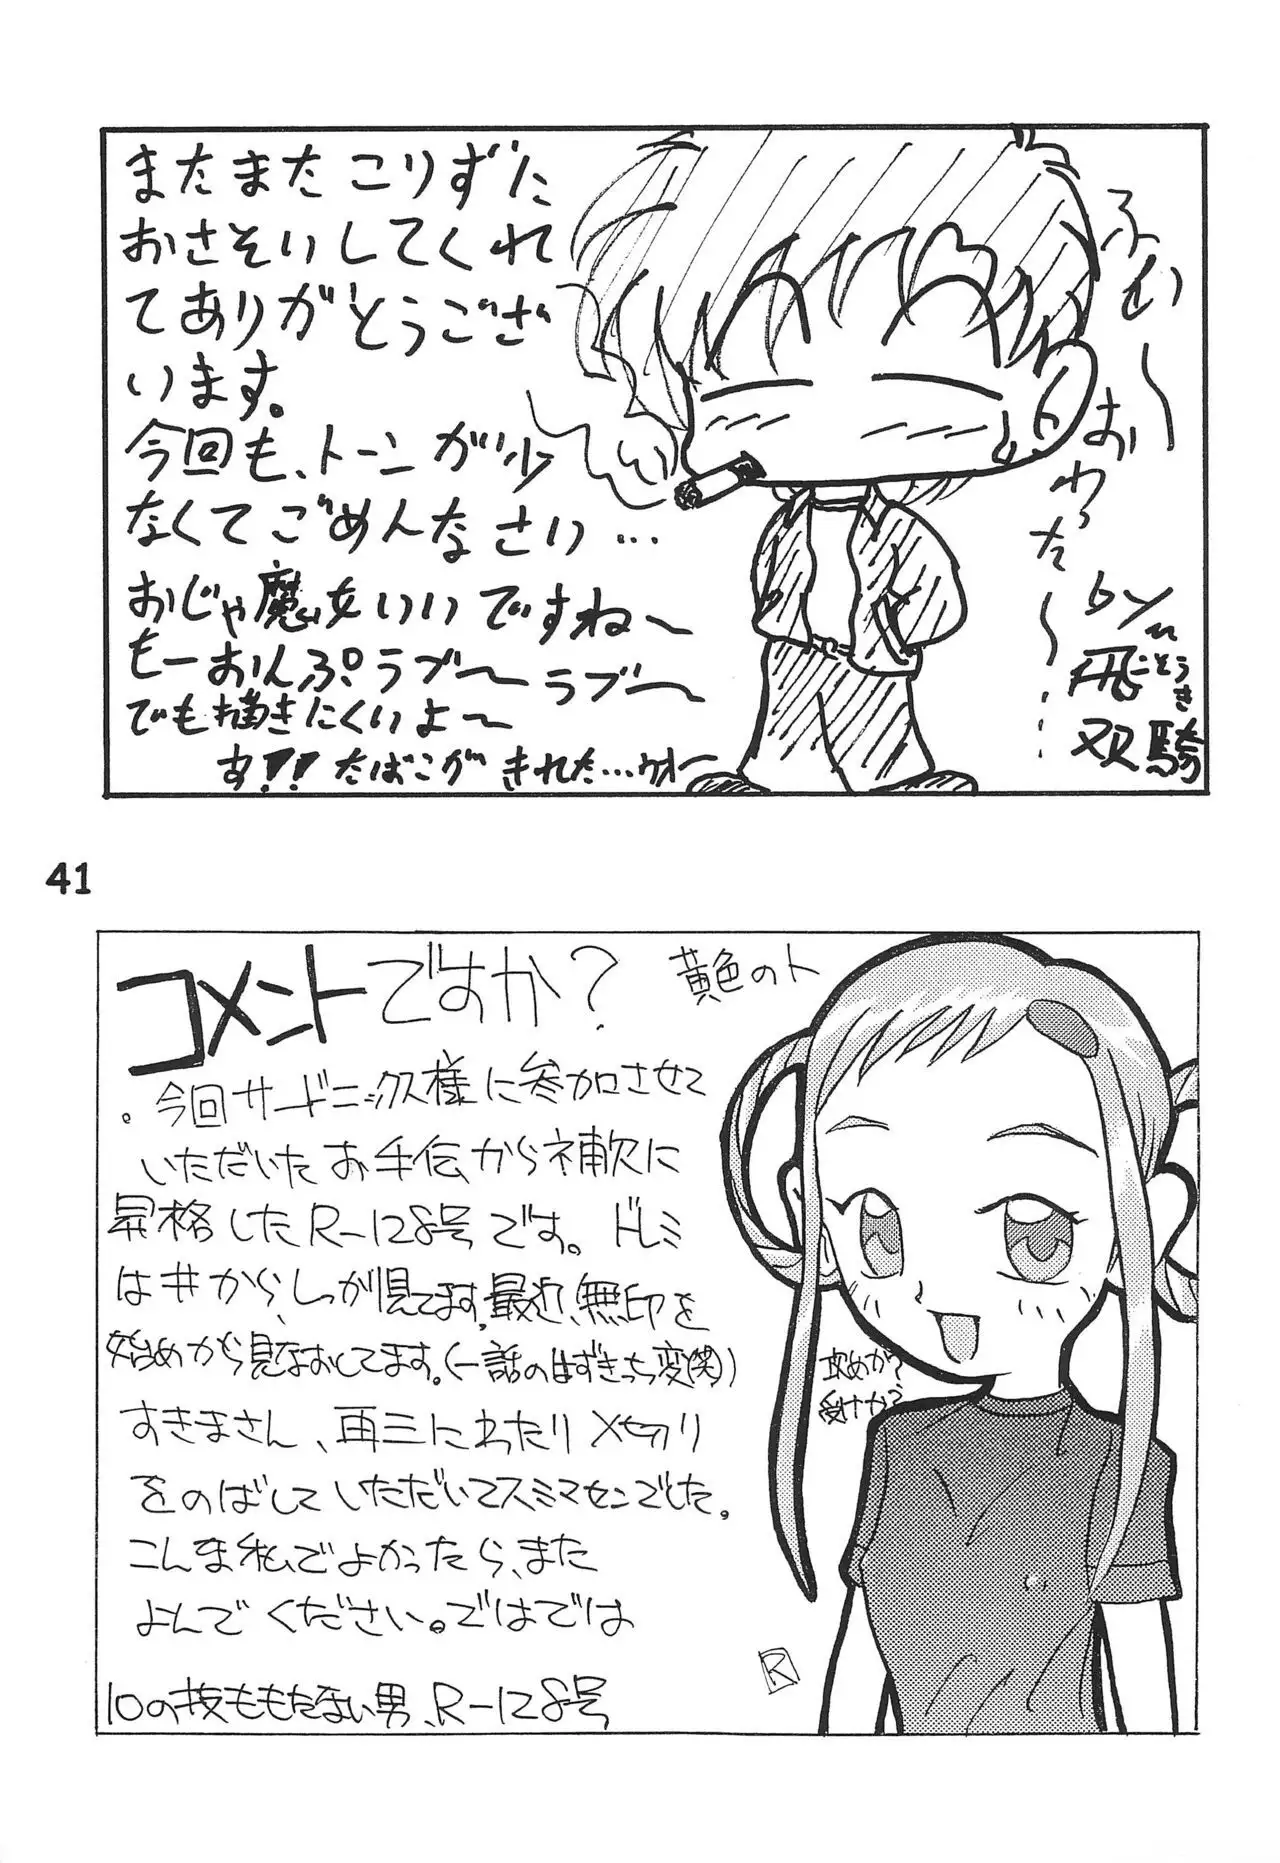 またまたこりずた
おさそいしてくれ
てありがとうござ
います。
今回も、トーンが少
なくてごめんなさい…
おじゃ魔女いいですね〜
もーおんぷラブ〜ラブ〜
でも描きにくいよ〜
す!!たばこがきれた…
ふい〜
おわった〜…
by
飛双騎
41
コメントですか?
黄色のト
。今回サードニックス様に参加させて
いただいたお手伝から補欠に
昇格したR-128号です。ドレミ
は#からしか見てます。最近、無印を
始めから見なおしてます。(一話のはずきっち変(笑))
すきまさん、再三にわたり〆切り
をのばしていただいてスミマセンでした。
こんな私でよかったら、また
よんでください。ではでは
10の技ももたない男、R-128号
攻めか?
受けか?
R